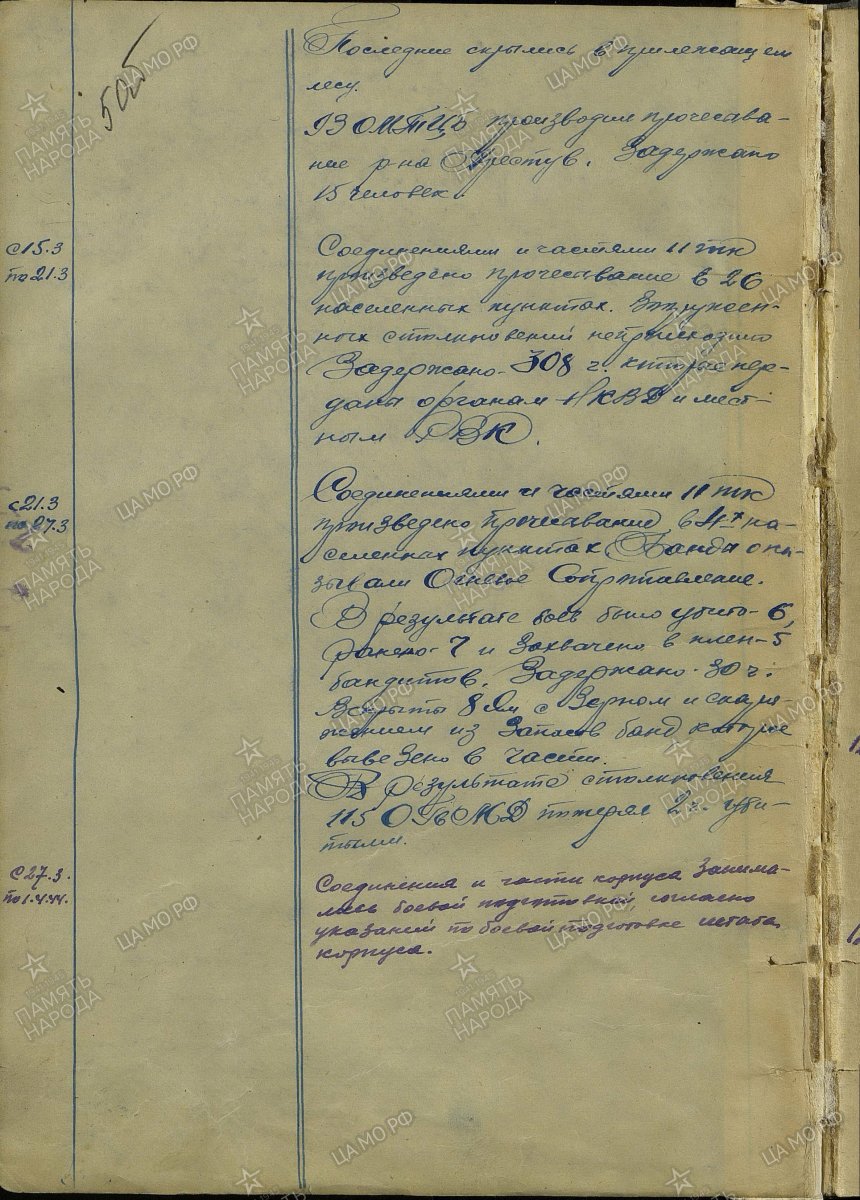 505
Последние скрылись в прилегающем
лесу.
производил прочесыва-
ние р-на Задержано
15 человек.
с 15.3
по 21.3
Соединениями и частями 11 тк
произведено прочесывание в 26
населенных пунктах. Вооружен-
ных столкновений не происходило
Задержано - 308 ч. которые пере-
даны органам НКВД и мест-
ным РВК.
с 21.3
по 27.3
Соединениями и частями 11 тк
произведено прочесывание в 4х на-
селенных пунктах. Банды ока-
зывали Огневое Сопротивление.
В результате боев было убито - 6,
ранено - 7 и Захвачено в плен - 5
бандитов. Задержано - 30 ч.
Вскрыты 8 Ям с Зерном и снаря-
жением из Запасов банд которые
вывезено в части.
В результате столкновения
115 потерял 2 ч. уби-
тыми.
с 27.3.
по 1.4.44.
Соединения и части корпуса Занима-
лись боевой подготовкой согласно
указаний по боевой подготовке штаба
корпуса.
ПАМЯТЬ
НАРОДА
ЦА МО РФ